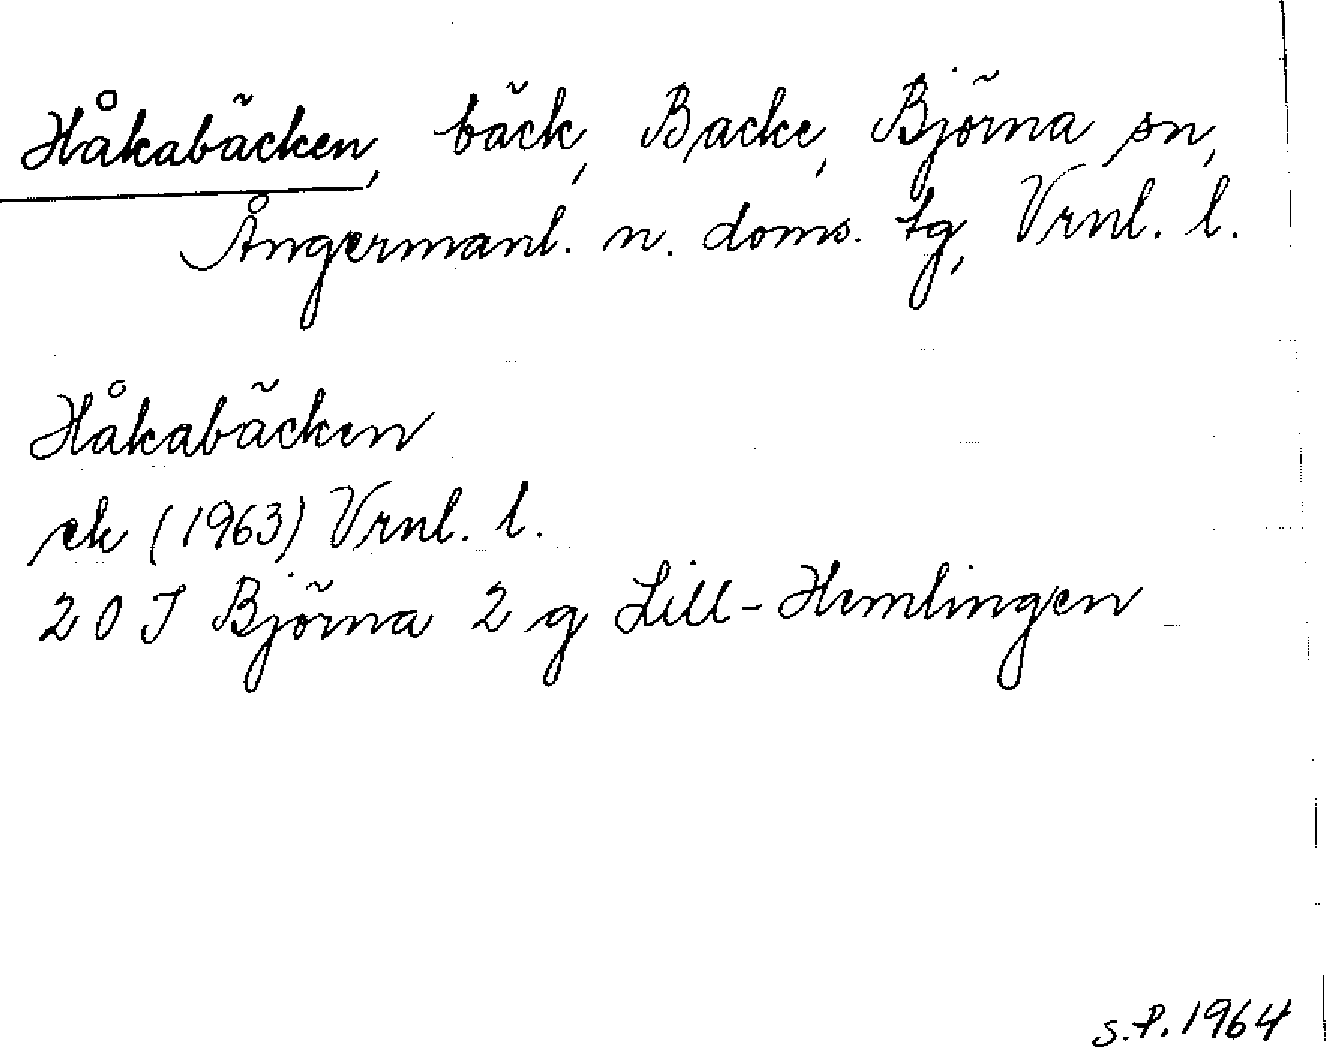 Håkabäcken, bäck, Backe, Björna sn,
Ångermanl. n. doms. tg, Vrnl. l.
Håkabäcken
ek (1963) Vrnl. l.
20 I Björna 2 g Lill-Hemlingen
S.P. 1964